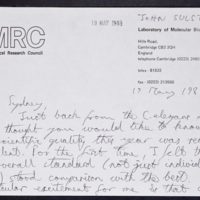 18 MAY 198
JOHN SULST
MRC
ical Research Council
Laboratory of Molecular Bio
Hills Road,
Cambridge CB2 2QH
England
telephone Cambridge (0223) 248
telex 81532
fax (0223) 213556
17 May 198
Sydney,
Just back from the C. elegans m
thought you would like to know
scientific quality, this year was re
lest. For the first time, I felt th
overall standard (not just individ
) stood comparison with the best.
cular excitement for me is that o